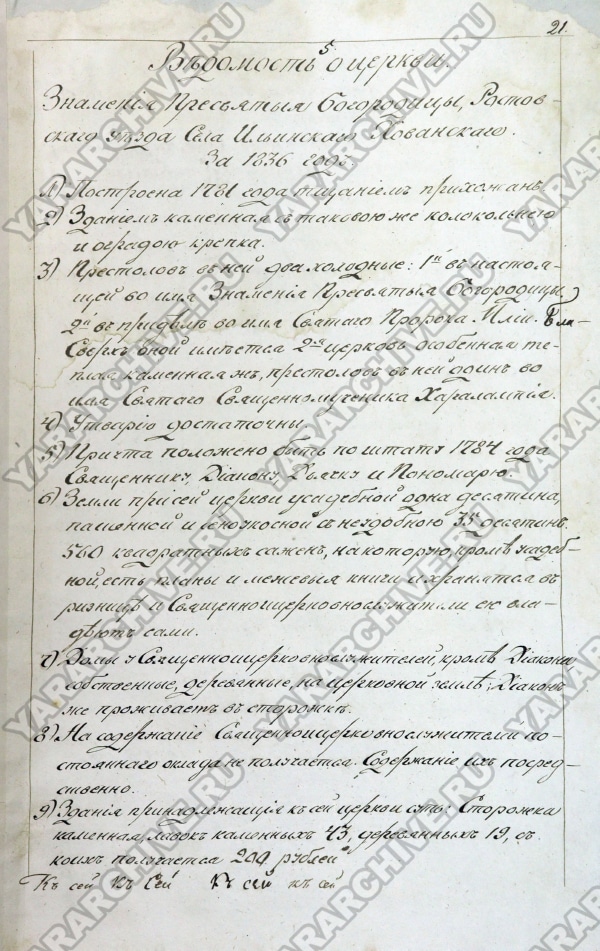 21.
5
Вѣдомость о церкви
Знаменія Пресвятыя Богородицы, Ростов-
скаго уѣзда Села Ильинскаго Хованскаго.
За 1836 годъ.
1) Построена 1781 года тщаніемъ прихожанъ
2) Зданіемъ каменная съ таковою же колокольнею
и оградою крепка.
3) Престоловъ въ ней два холодные: 1й въ настоя-
щей во имя Знаменія Пресвятыя Богородицы,
2й въ придѣлѣ во имя Святаго Пророка Иліи.
Сверхъ оной имѣется 2-я церковь особенная те-
плая каменная жъ, престолъ въ ней одинъ во
имя Святаго Священномученика Харалампія.
4) Утварію достаточны.
5) Причта положено быть по штату 1784 года
Священнику, Діакону, Дьячку и Пономарю.
6) Земли при сей церкви усадебной одна десятина,
пашенной и сенокосной съ неудобною 35 десятинъ.
560 квадратныхъ саженъ, на которую, кромѣ усадеб-
ной, есть планы и межевыя книги и хранятся въ
ризницѣ и Священноцерковнослужители ею вла-
дѣютъ сами.
7) Домы у Священноцерковнослужителей, кромѣ Діакона
собственные, деревянные, на церковной землѣ; Діаконъ
же проживаетъ въ сторожкѣ.
8) На содержаніе Священноцерковнослужителей по-
стояннаго оклада не получается. Содержаніе ихъ посред-
ственно.
9) Зданія принадлежащія къ сей церкви суть: Сторожка
каменная, лавокъ каменныхъ 43, деревянныхъ 19, съ
коихъ получается рублей
Къ сей Къ Сей Къ сей къ сей
YARARCHIVE.RU